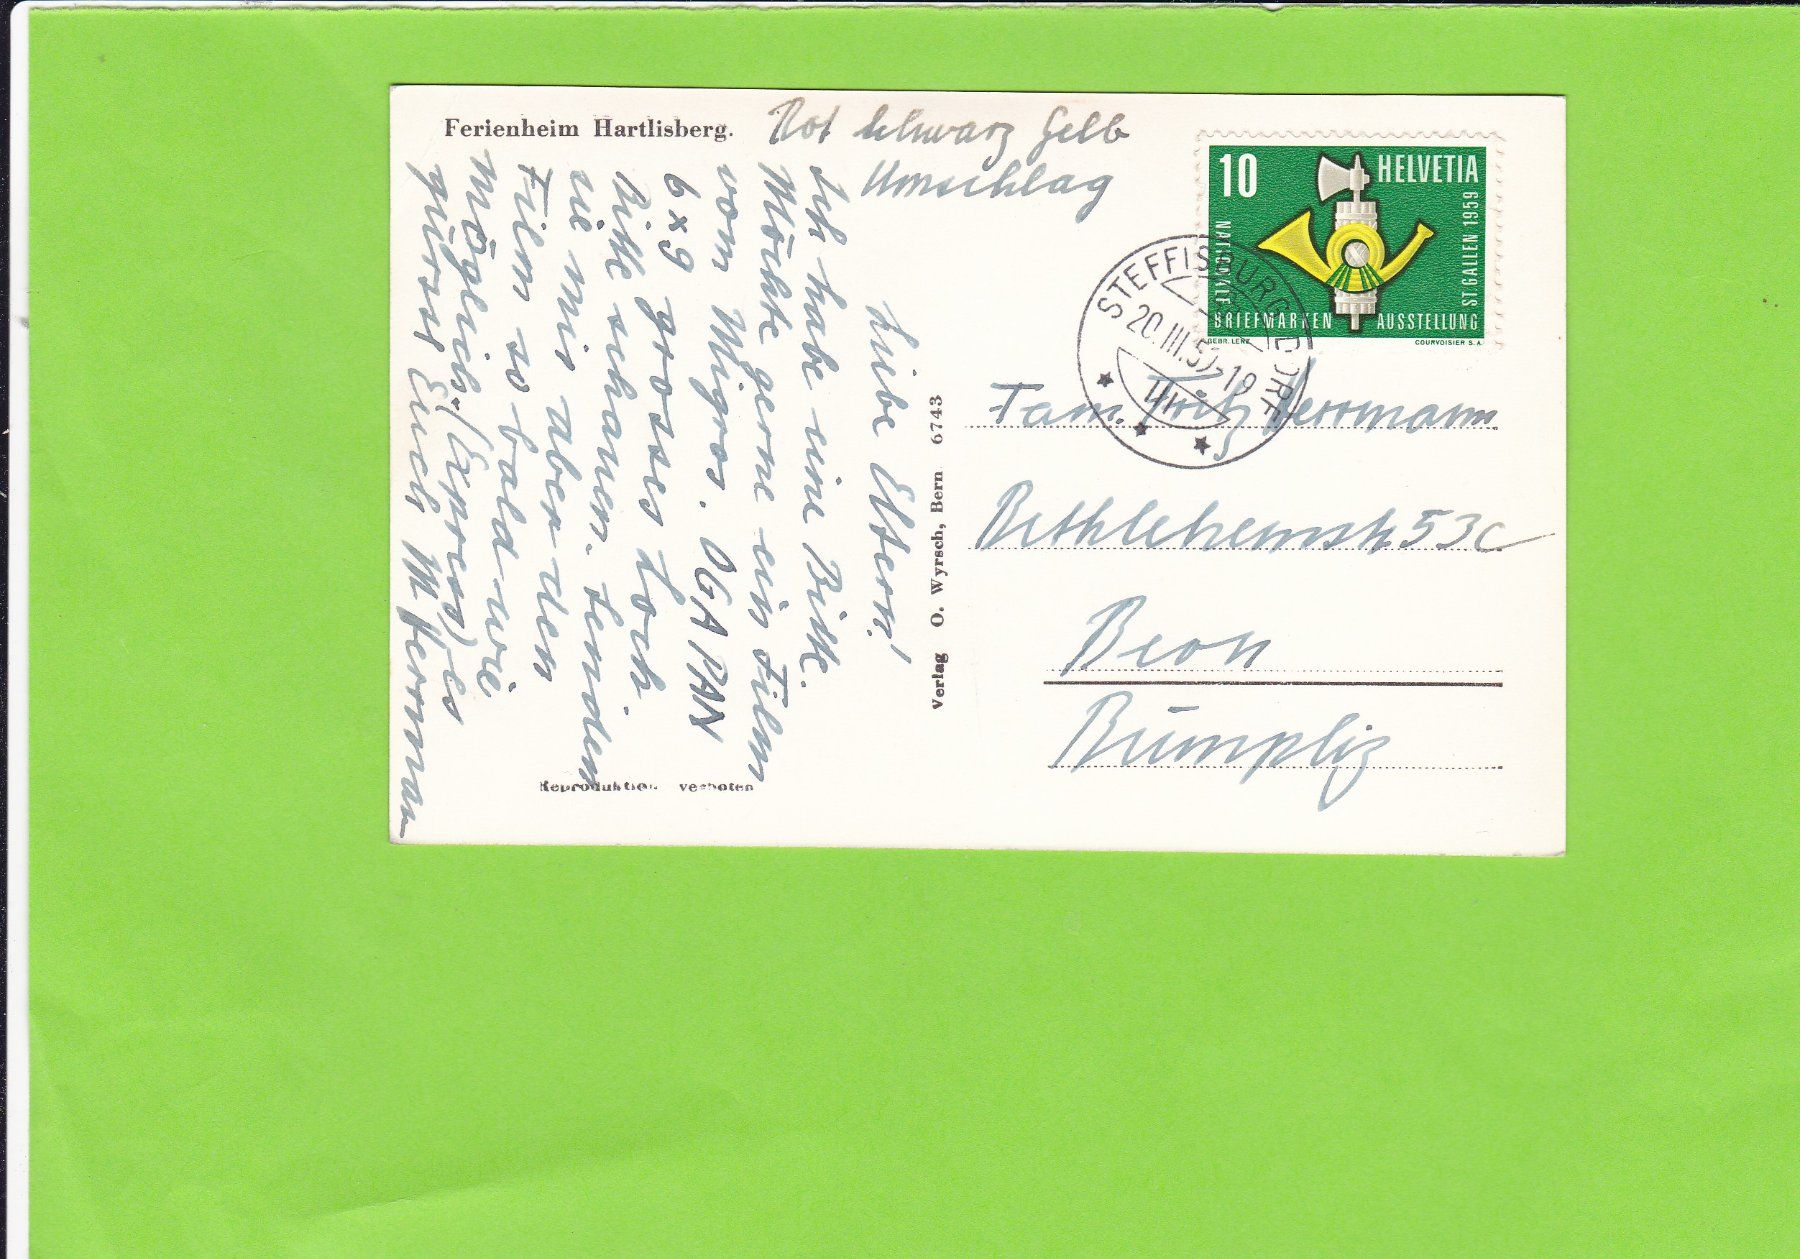 Ferienheim Hartlisberg.
Rot Schwarz Gelb
Umschlag
Liebe Eltern!
Ich habe eine Bitte.
Möchte gerne ein Film
vom Migros. OGAPAN
6x9 grosses Loch
Bitte schauen. Senden
sie mir aber den
Film so bald wie
möglich. (Express) es
grüsst Euch M Herrman
Reproduktion verboten
Verlag O. Wyrsch, Bern 6743
10 HELVETIA
NATIONALE
BRIEFMARKEN AUSSTELLUNG
ST. GALLEN 1959
GEBR. LENZ COURVOISIER S.A.
STEFFISBURG DORF
20.III.59-19
Fam. Fritz Herrmann
Bethlehemstr. 53c
Bern
Bümpliz